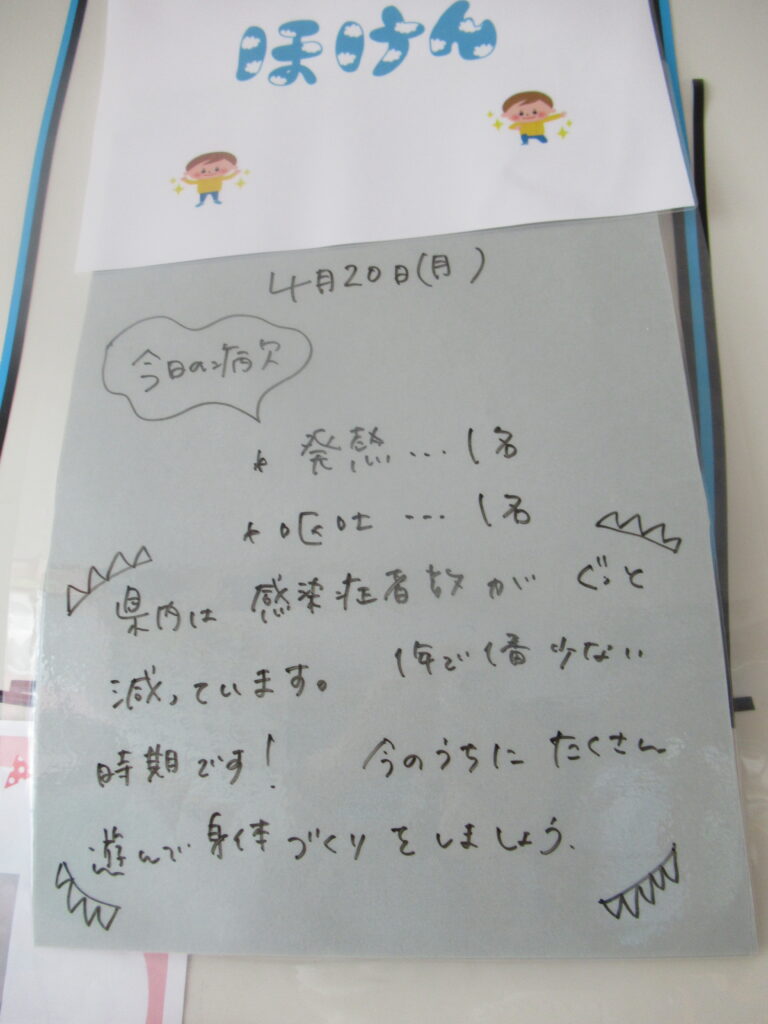 ほけん
4月20日(月)
今日の病欠
* 発熱…1名
* 嘔吐…1名
県内は感染症者数がぐっと
減っています。1年で1番少ない
時期です！ 今のうちにたくさん
遊んで身体づくりをしましょう。